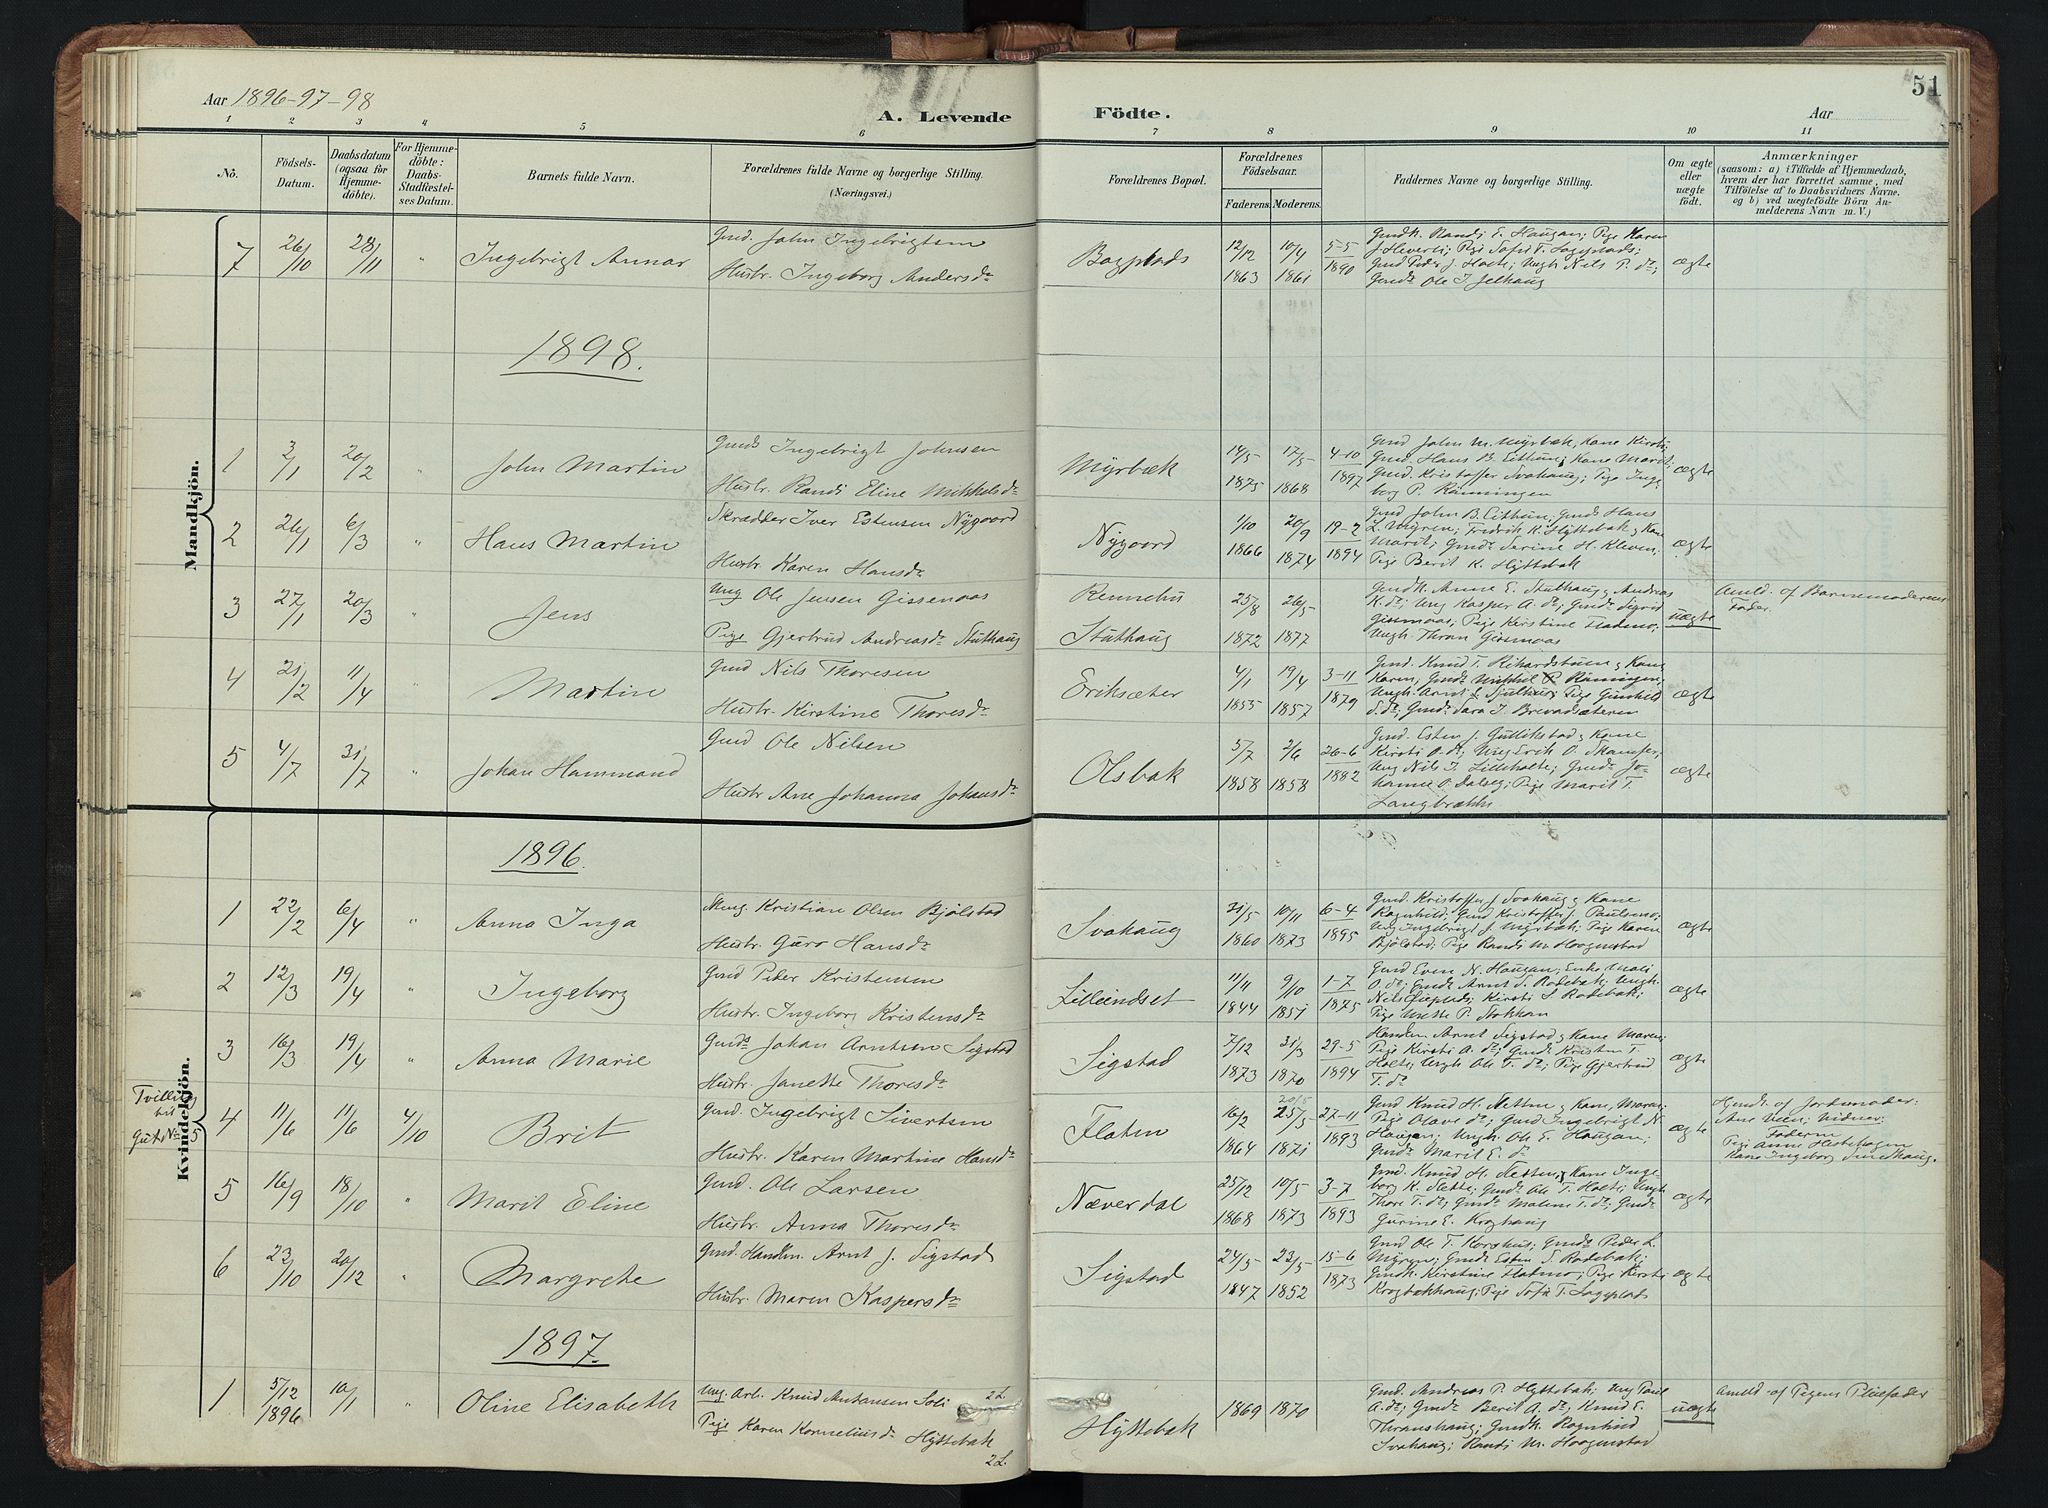 51
Aar 1896-97-98
A. Levende Födte.
Aar
1 2 3 4 5 6 7 8 9 10 11
No.
Födsels-Datum.
Daabsdatum (ogsaa for Hjemmedöbte).
For Hjemmedöbte: Daabs-Stadfæstelses Datum.
Barnets fulde Navn.
Forældrenes fulde Navne og borgerlige Stilling. (Næringsvei.)
Forældrenes Bopæl.
Forældrenes Födselsaar.
Faderens. Moderens.
Faddernes Navne og borgerlige Stilling.
Om ægte eller uægte födt.
Anmærkninger
(saasom: a) i Tilfælde af Hjemmedaab, hvem der har forrettet samme, med Tilföielse af to Daabsvidners Navne. og b) ved uægtefödte Börn Anmelderens Navn m. V.)
Mandkjön.
7 26/10 28/11 " Ingebrigt Annar
Gmd. John Ingebrigtsen
Hustr. Ingeborg Andersdr
Bagplads
12/12 1863 10/4 1861 5-5 1890
Gmdk. Randi E. Haugan; Pige Karen
Gmd Peder J. Holte; Ungk Nils P. do;
Gmds Ole J. Jelhaug
ægte
1898.
1 3/1 20/2 " John Martin
Gmds Ingebrigt Johnsen
Hustr. Randi Eline Mikkelsdr
Myrbæk
14/5 1875 12/5 1868 4-10 1897
Gmd John M. Myrbæk, Kone Kirsti;
Gmd. Hans B. Eithun; Kone Marit;
Gmd. Kristoffer Svahaug; Pige Inge-
borg P. Rönningen
ægte
2 26/1 6/3 " Hans Martin
Skrædder Iver Estensen Nygaard
Hustr. Karen Hansdr
Nygaard
1/10 1866 20/9 1874 19-2 1894
Gmd John B. Eithun; Gmds Hans
L. Myren; Fredrik K. Hyttebak & Kone
Marit; Gmds Serine H. Kleven;
Pige Berit K. Hyttebak
ægte
3 27/1 20/3 Jens
Ung Ole Jensen Gissenaas
Pige Gjertrud Andreasdr Stuthaug
Rennebu
Stuthaug
25/8 1872 26/5 1877
Gmdk. Anne E. Stuthaug, Andreas
K. do; Ung Kasper A. do; Gmds Sigrid
Gissenaas; Pige Kirstine Flatmo;
Ungk. Thran Gissenaas
uægte
Anmld. af Barnemoderens
Fader.
4 21/2 11/4 Martin
Gmd Nils Thoresen
Hustr. Kirstine Thoresdr
Eriksæter
4/1 1855 19/4 1857 3-11 1879
Gmd. Knud T. Rikardstuen & Kone
Karen; Gmds Mikkel P. Rönningen,
S. do; Gmds Sara J. Brevadsæteren
ægte
5 4/7 31/7 " Johan Hammand
Gmd Ole Nilsen
Hustr Ane Johanna Johansdr
Olsbak
5/7 1858 2/6 1858 26-6 1882
Gmd. Esten J. Gullikstad & Kone
Kirsti O. do; Ung Erik O. Skamfer;
Ung Nils J. Lilleholte; Gmds Jo-
hanne O. Daleng; Pige Marit T.
Langbrække
ægte
Kvindekjön.
1896.
1 22/2 6/4 " Anna Inga
Kristian Olsen Bjölstad
Hustr. Guro Hansdr
Svahaug
31/5 1860 10/11 1873 6-4 1895
Gmd. Kristoffer J. Svahaug & Kone
Ragnhild; Gmd Kristoffer J. Paulsmo;
Ung Ingebrigt J. Myrbæk; Pige Karen
Bjölstad; Pige Randi M. Haagenstad
ægte
2 12/3 19/4 " Ingeborg
Gmd Peder Kristensen
Hustr. Ingeborg Kristensdr
Lilleindset
11/11 1844 9/10 1851 1-7 1875
Gmd Even N. Haugan; Enke Mali
O. do; Gmds Arnt S. Rodebak; Ungk.
Kirsti S Rodebak;
Pige Mette P. Stokkan
ægte
3 16/3 19/4 " Anna Marie
Gmds Johan Arntsen Sigstad
Hustr. Janette Thoresdr
Sigstad
7/12 1873 31/3 1870 29-5 1894
Handlm. Arnt Sigstad & Kone Maren;
Pige Kirsti A. do; Gmds Kristen T.
Holte; Ungk Ole T. do; Pige Gjertrud
T. do
ægte
Tvilling
Gut No 5
4 11/6 11/6 4/10 Brit
Gmd. Ingebrigt Sivertsen
Hustr. Karen Martine Hansdr
Flaten
16/2 1864 20/5 25/5 1871 27-11 1893
Gmd Knud H. Netten & Kone Maren;
Pige Olave do; Gmd Ingebrigt N.
Haugen; Ungk. Ole E. Haugan;
Gmds Marit E. do
ægte
Hjmdr. af Jordemoder:
Ane Veen; Vidner:
Faderen
Pige Anne Hestehagen
Kone Ingeborg Sundhaug.
5 16/9 18/10 " Marit Eline
Gmd. Ole Larsen
Hustr. Anna Thoresdr
Næverdal
25/12 1868 10/5 1873 3-7 1893
Gmd. Knud H. Netten, & Kone Inge
borg K. Nette; Gmds Ole T. Holte; Ungk
Thore T. do; Gmds Malene T. do; Gmds
Gurine E. Kroghaug
ægte
6 23/10 20/12 " Margrete
Gmd. Handlm. Arnt J. Sigstad
Hustr. Maren Kaspersdr
Sigstad
24/5 1847 23/5 1852 15-6 1873
Gmd Ole T. Korshus; Gmds Peder L.
Myren; Gmds Esten S. Rodebak;
Gmdk. Kirstine Flatmo; Pige Kirsti
Krogbækhaug; Pige Sofie T. Sagplads
ægte
1897.
1 5/12 1896 10/1 " Oline Elisabeth
Ung. Arb. Knud Antonsen Soli 2 L.
Pige Karen Korneliusdr Hyttebak
2 L.
Hyttebak
1869 1870
Gmd. Andreas P. Hyttebak; Ung Paul
A. do; Gmds Berit A. do; Knud E.
Thranshaug; Gmdk. Ragnhild
Svahaug; Randi M. Haagenstad
uægte
Anmld af Pigens Pleiefader